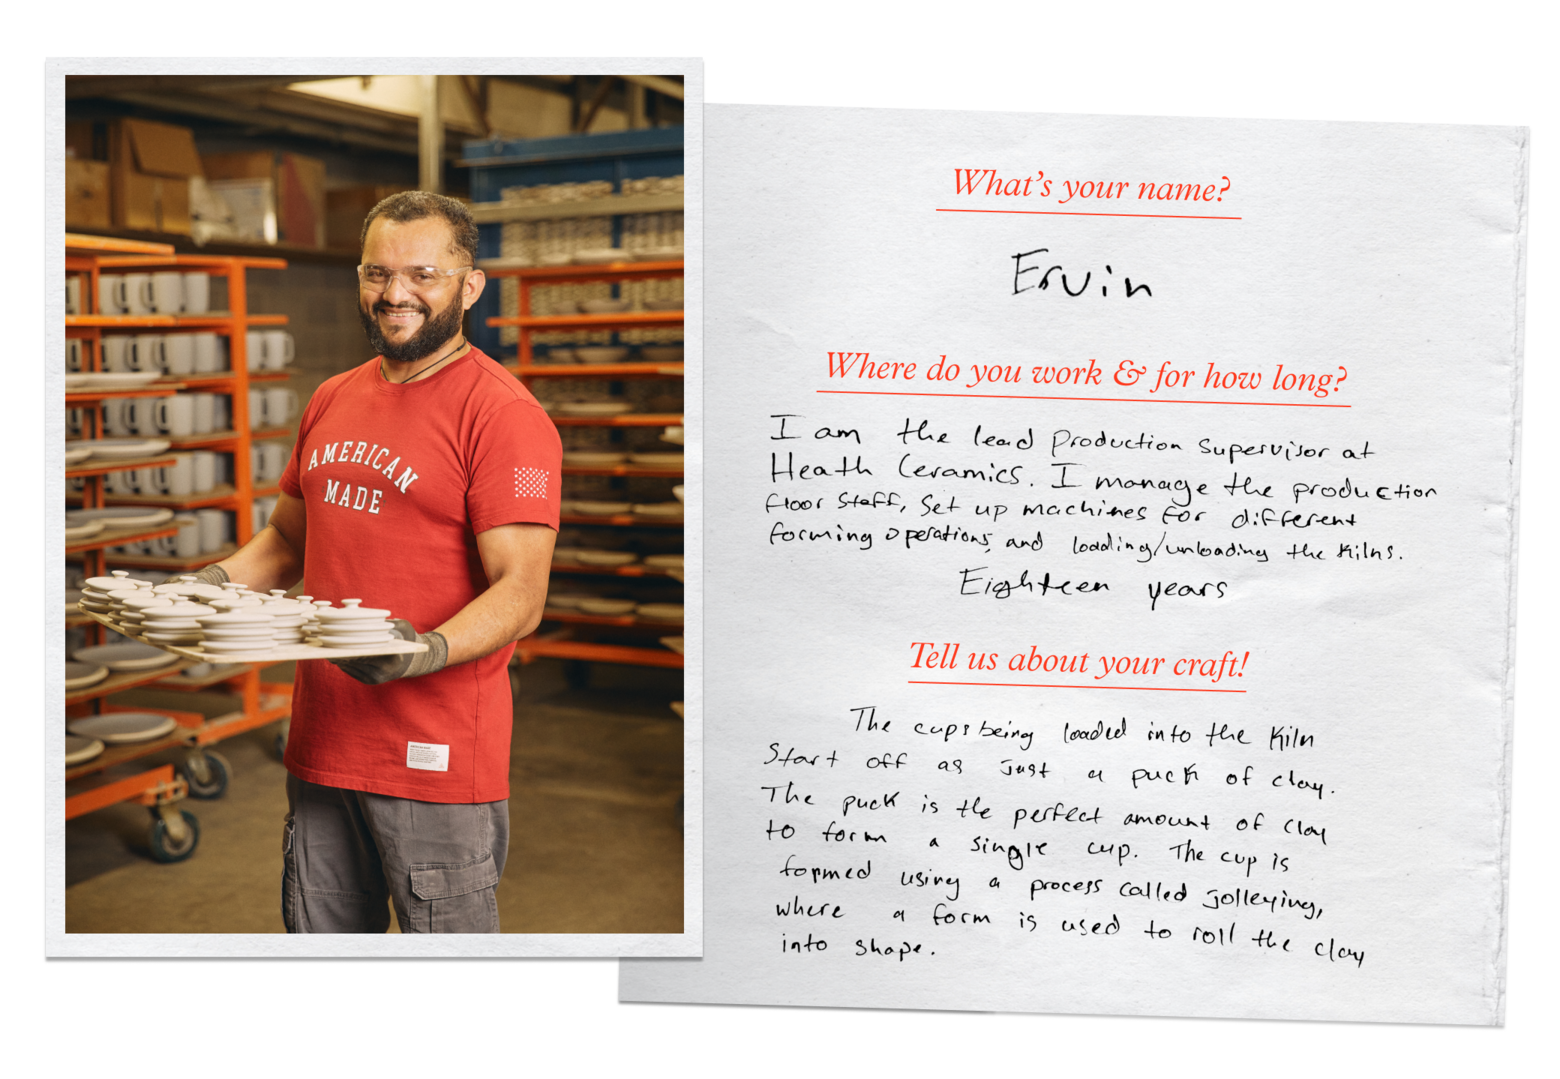 AMERICAN
MADE
What's your name?
Ervin
Where do you work & for how long?
I am the lead production supervisor at
Heath Ceramics. I manage the production
floor staff, set up machines for different
forming operations, and loading/unloading the kilns.
Eighteen years
Tell us about your craft!
The cups being loaded into the kiln
start off as just a puck of clay.
The puck is the perfect amount of clay
to form a single cup. The cup is
formed using a process called jolleying,
where a form is used to roll the clay
into shape.